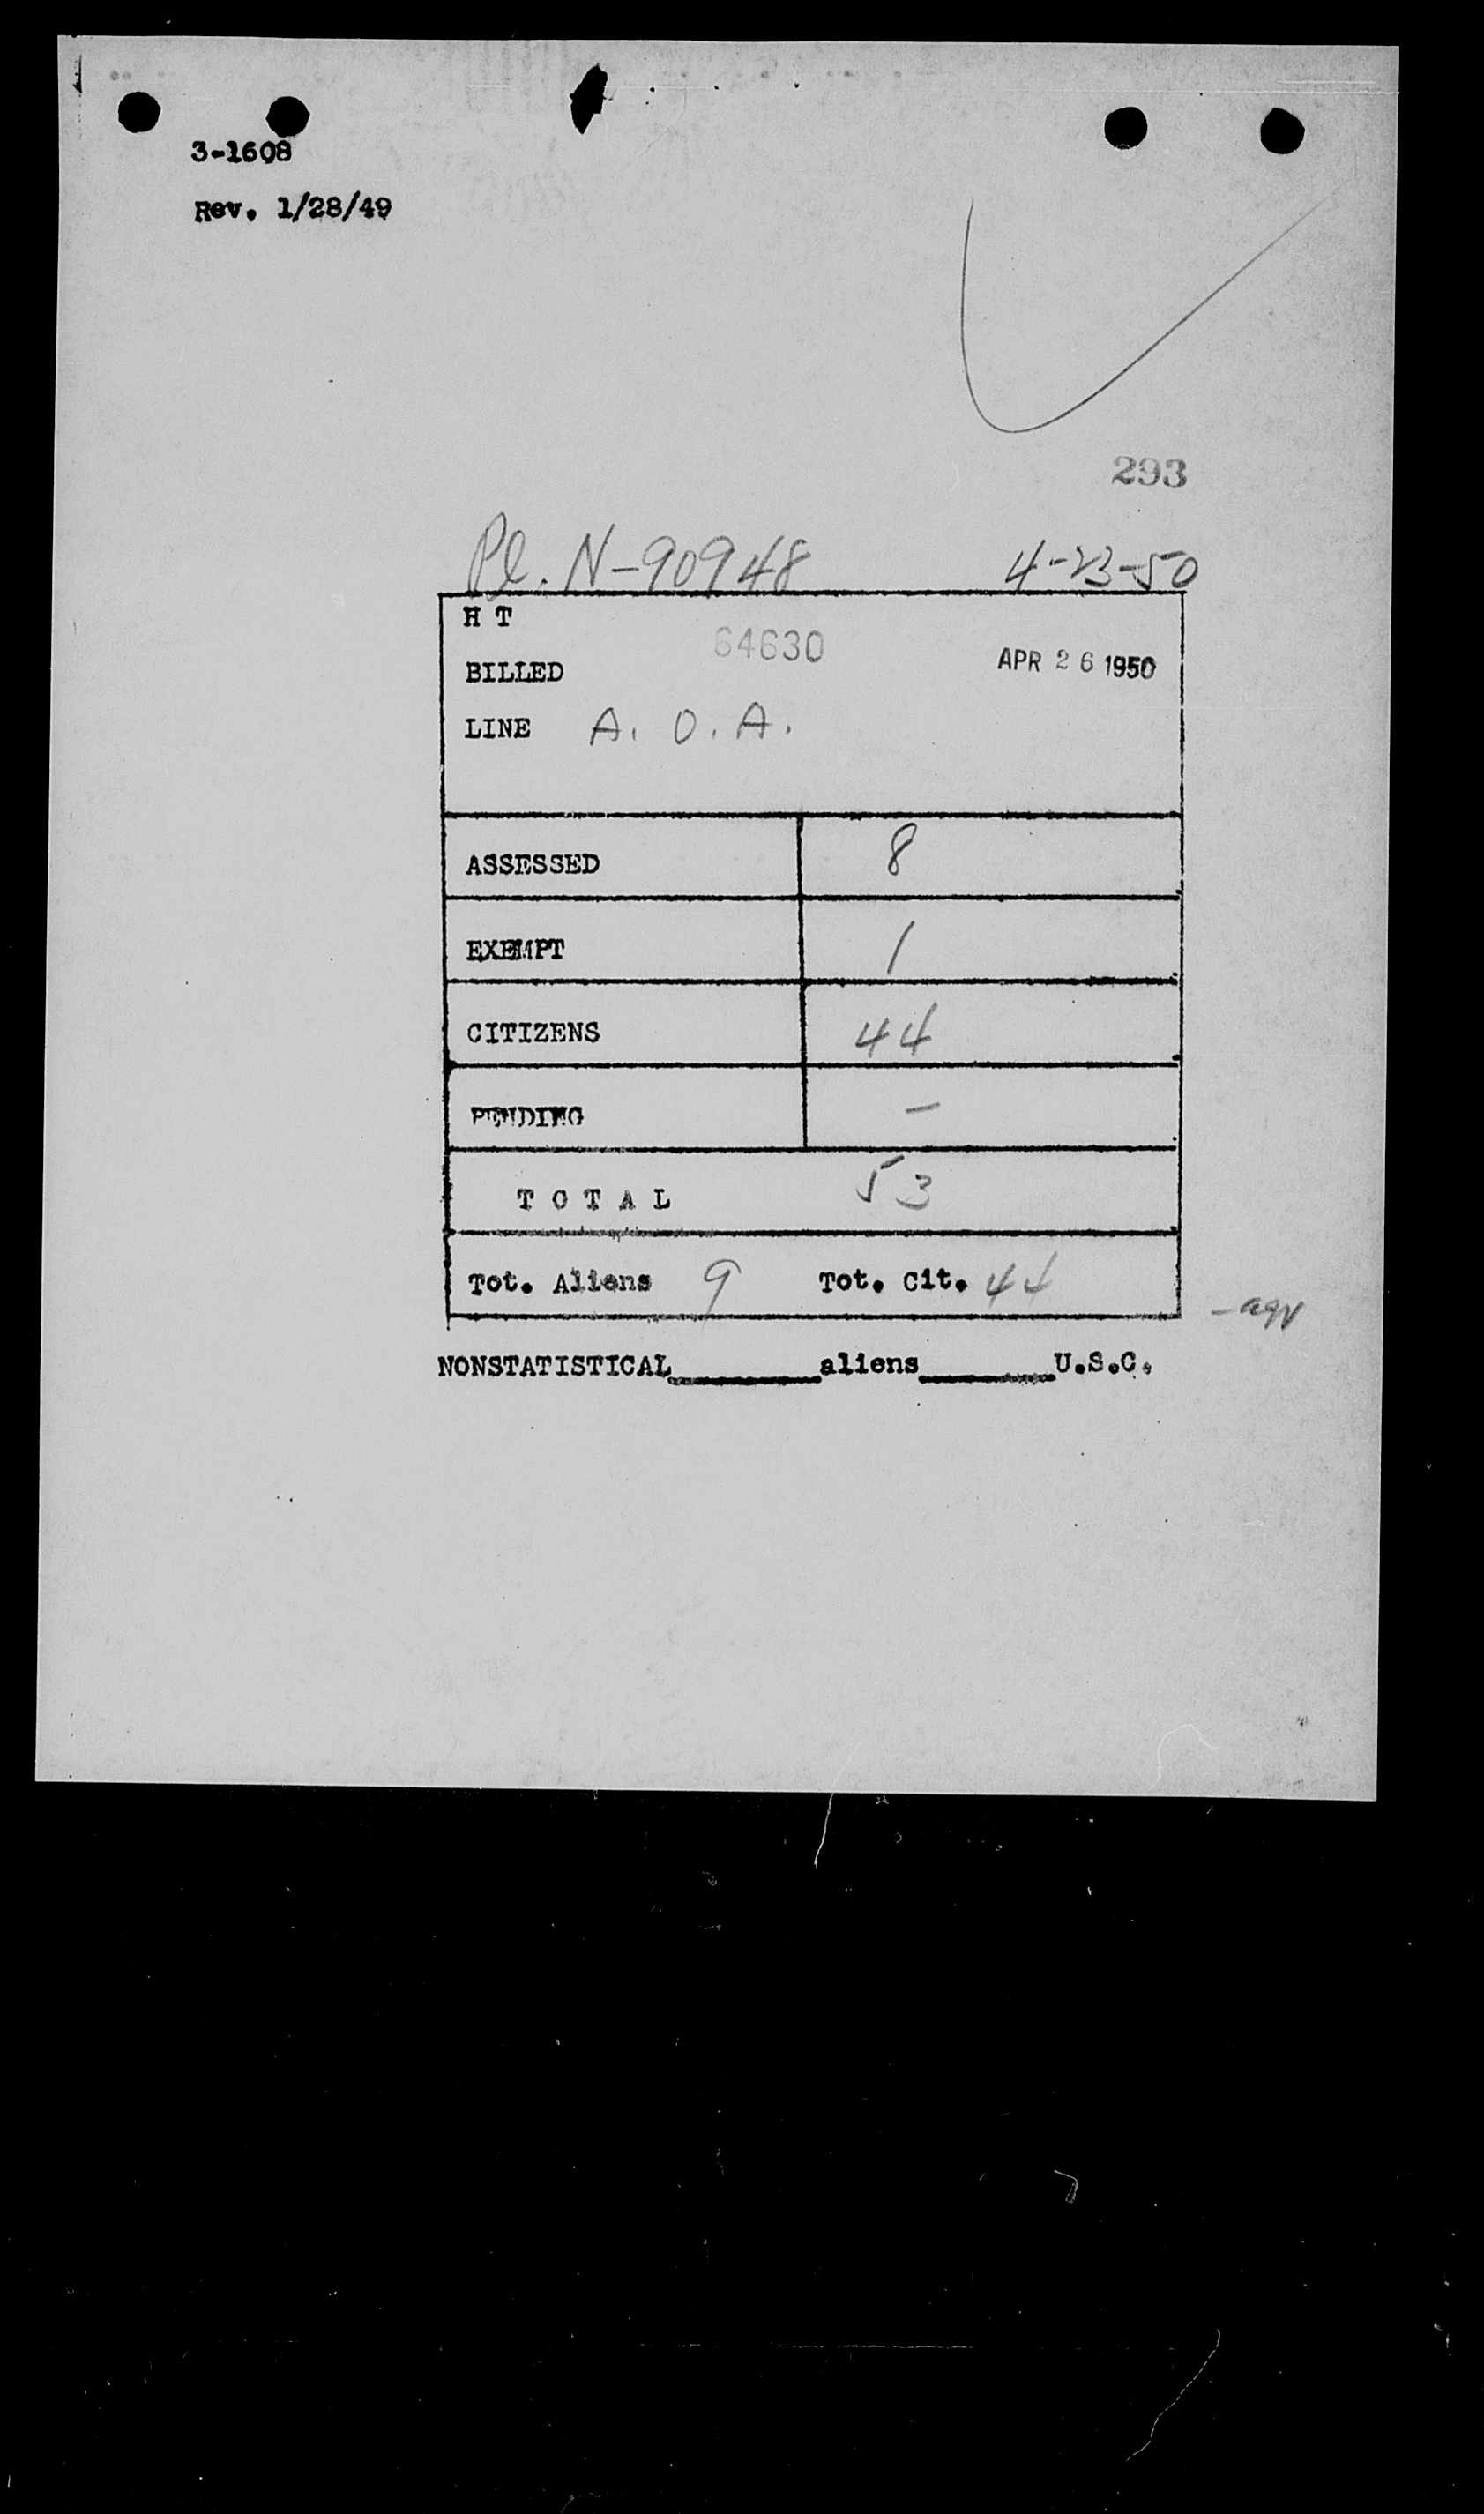 3-1608
Rev. 1/28/49
293
Pl. N-90948 4-23-50
H T
64630
BILLED APR 26 1950
LINE A. O. A.
ASSESSED 8
EXEMPT 1
CITIZENS 44
PENDING -
TOTAL 53
Tot. Aliens 9 Tot. Cit. 44
NONSTATISTICAL________aliens________U.S.C.